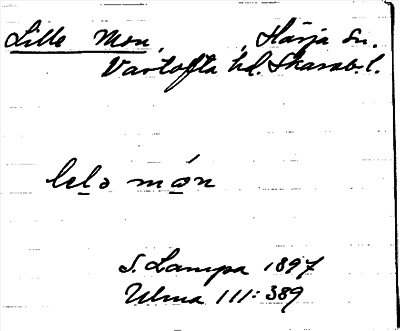 Lille Mon, Härja sn.
Vartofta hd. Skarab. l.
lelə món
S. Lampa 1897
Ulma 111:389